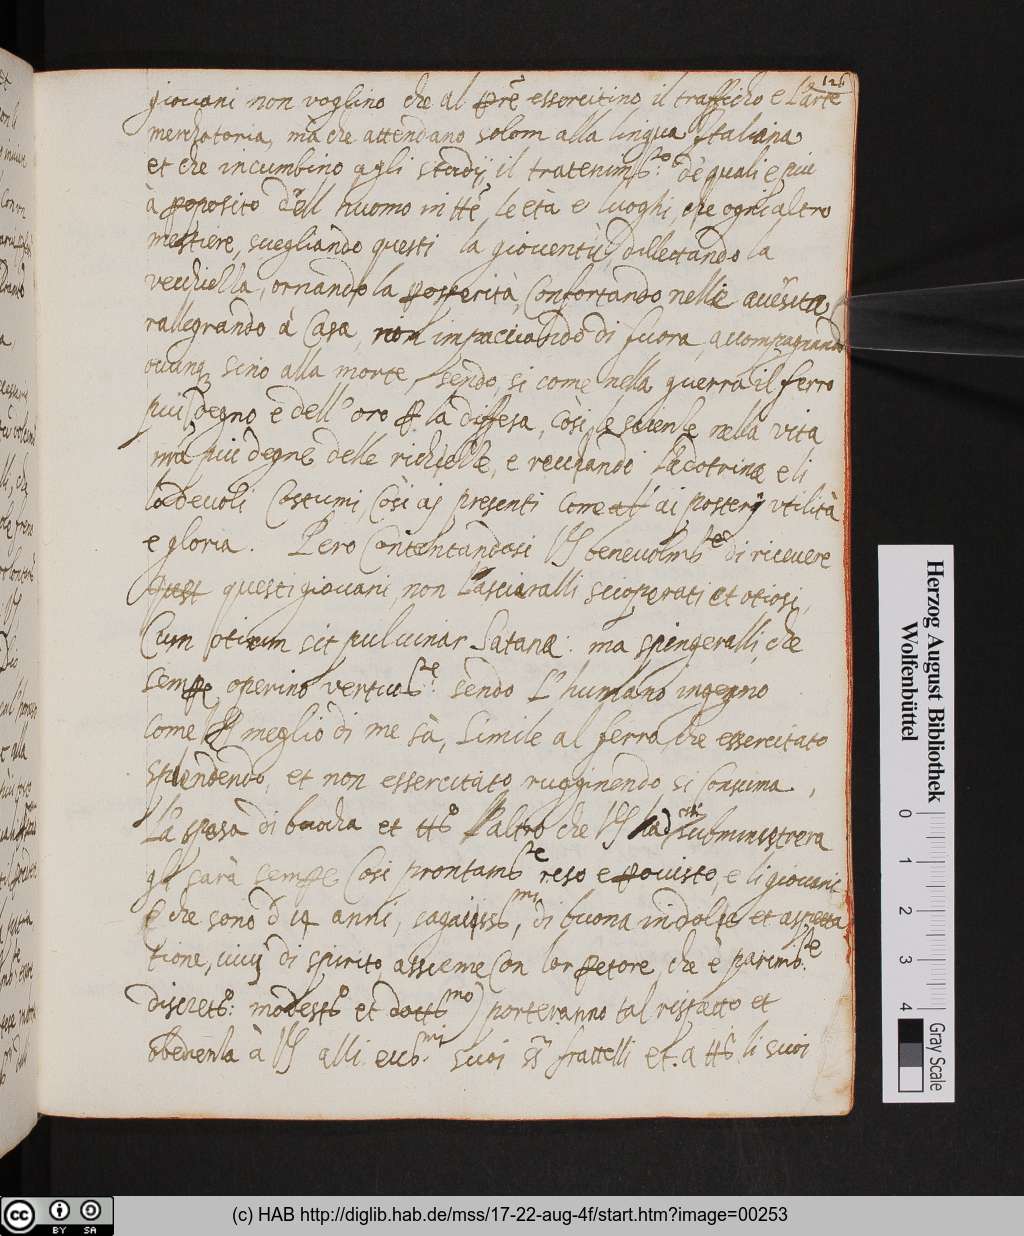 126
giouani non voglino che al pr̃e essercitino il traffficho e l'arte
merchatoria, ma che attendano solom alla lingua Italiana
et che incumbino agli studij il tratenimto: de quali e piu
à proposito dell huomo in tte le età e luoghi, che ogni altro
mestiere, suegliando questi la giouentù, dillettando la
vecchiezza, ornando la posterità, Confortando nelle
rallegrando à Casa, non impacciando di fuora, accompagnando
ouunq; sino alla morte, sendo, si come nella guerra il ferro
piu degno è dell' oro p la diffesa, così le scienze nella vita
ma piu degne delle richezze, e reccando la dotrina e li
lodeuoli Costumi, Così aj presenti come ai posterj vtilità
e gloria. Pero Contentandosi VS beneuolmte di riceuere
quest questi giouani, non lasciaralli scioperati et otiosi,
Cum otium sit puluinar Satanæ: ma spingeralli, che
sempre operino vertuoste: sendo L'humano ingegno
come meglio di me sà, simile al ferro, che essercitato
splendendo, et non essercitato rugginendo si consuma,
La spesa di boccha et tto l'altro che VS subministrera
gli sarà sempre Cosi prontamte reso e prouisto, e li giouani
e che sono d 14 anni, sagacissmi, di buona indolle et aspetta
tione, viuj di spirito assieme Con lor pretore, che è parimte:
discreto: modesto et dottissmo) porteranno tal rispetto et
obedienza à VS alli eccmi: suoi sri frattelli et. a tti li suoi
Herzog August Bibliothek
Wolfenbüttel
0 1 2 3 4
Gray Scale
cc BY SA
(c) HAB http://diglib.hab.de/mss/17-22-aug-4f/start.htm?image=00253